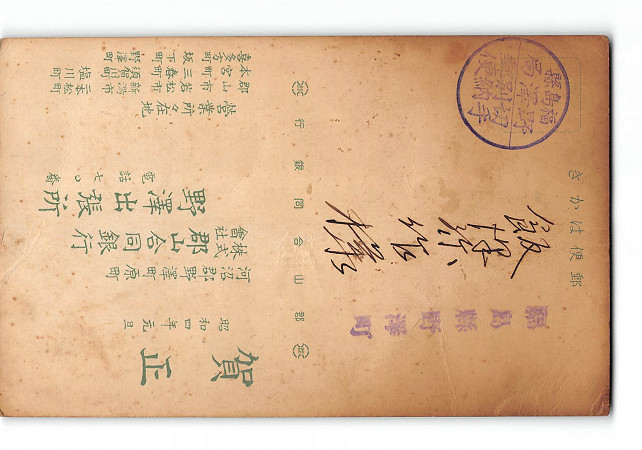 郵便はかき
福島縣
野澤局
切手別納
郵便
飯
作
様
福島縣野澤町
郡山合同銀行
賀正
昭和四年元旦
河沼郡野澤町原町
株式會社 郡山合同銀行
野澤出張所
電話七〇番
營業所々在地
郡山市 若松市 新潟市 二本松町
本宮町 三春町 須賀川町 塩川町
喜多方町 坂下町 野澤町